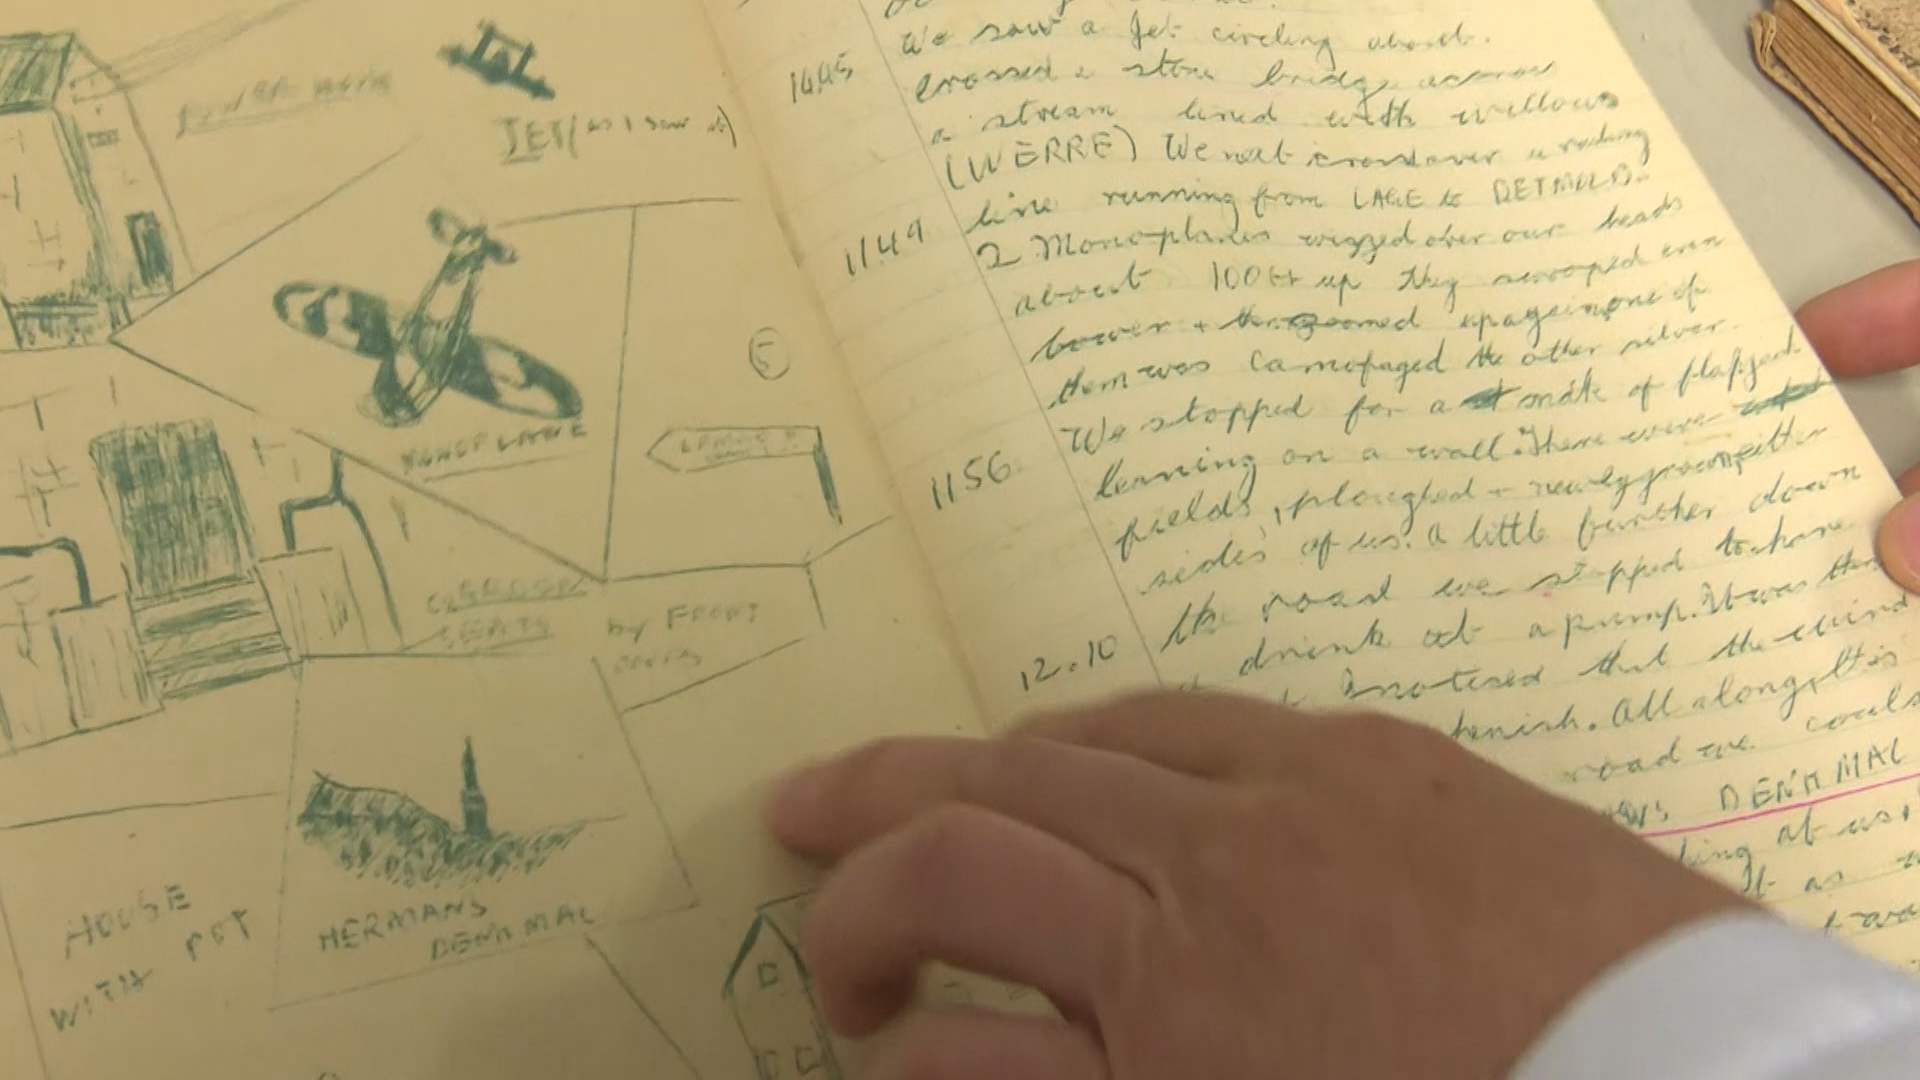 JET (as I saw it)
MONOPLANE
5
by FRONT
HOUSE
WITH POT
HERMANS
DENKMAL
We saw a Jet circling about.
1145 crossed a stone bridge across
a stream lined with willows
(WERRE) We next crossed over a railway
line running from LAGE to DETMOLD.
1149 2 Monoplanes wizzed over our heads
about 100ft up They swooped even
lower + then zoomed up again one of
them was camofaged the other silver.
1156 We stopped for a smoke
leaning on a wall. There were
fields, ploughed + newly grown either
sides of us. A little further down
the road we stopped to have
12.10 a drink at a pump. It was
I noticed that the wind
. All along this
road we could
DENKMAL
at us.